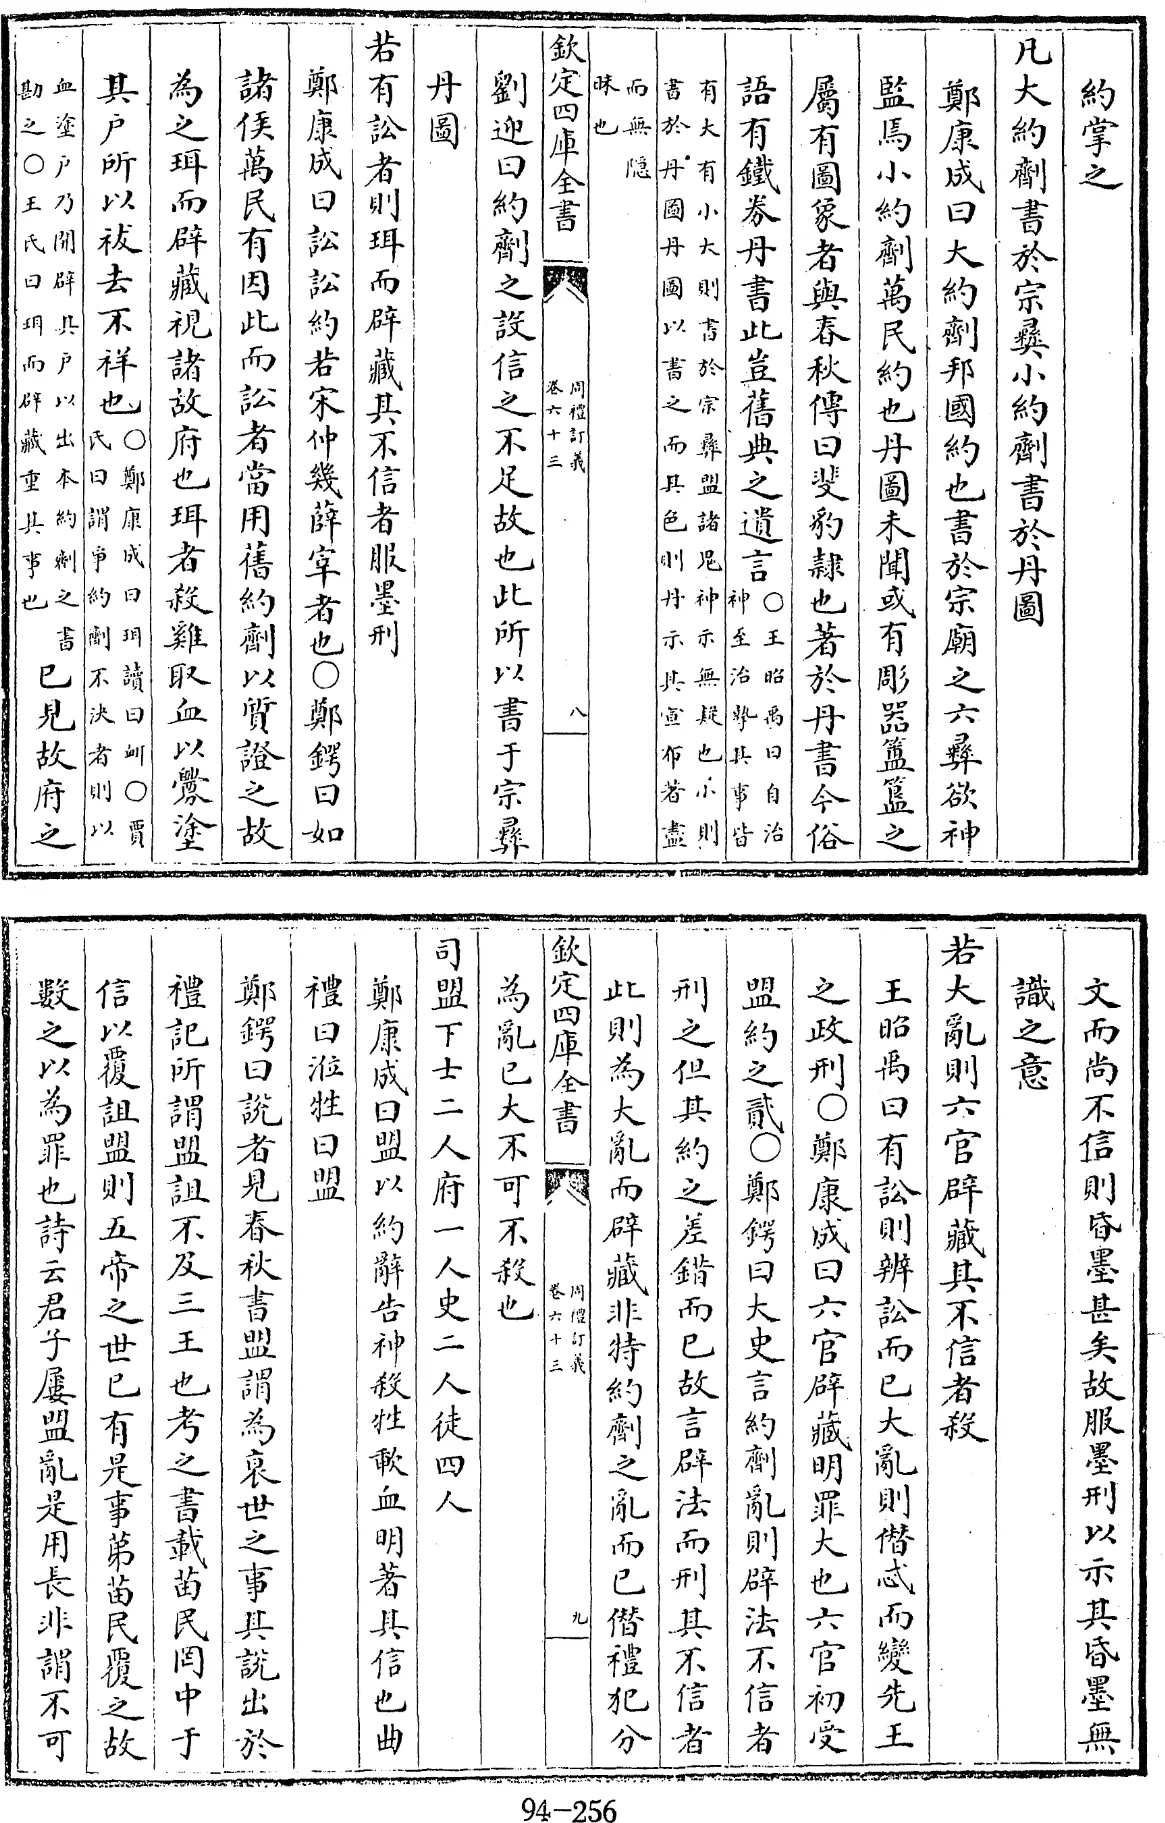 約掌之
凡大約劑書於宗彝小約劑書於丹圖
鄭康成曰大約劑邦國約也書於宗廟之六彝欲神
監焉小約劑萬民約也丹圖未聞或有彫器簠簋之
屬有圖象者與春秋傳曰斐豹隸也著於丹書今俗
語有鐵券丹書此豈舊典之遺言○王昭禹曰自治
神至治摯其事皆
有大有小大則書於宗彝盟諸鬼神示無疑也小則
書於丹圖丹圖以書之而其色則丹示其宣布著盡
而無隠
昧也
欽定四庫全書
周禮訂義
卷六十三
八
劉迎曰約劑之設信之不足故也此所以書于宗彝
丹圖
若有訟者則珥而辟藏其不信者服墨刑
鄭康成曰訟訟約若宋仲幾薛宰者也○鄭鍔曰如
諸侯萬民有因此而訟者當用舊約劑以質證之故
為之珥而辟藏視諸故府也珥者殺雞取血以釁塗
其戶所以祓去不祥也○鄭康成曰珥讀曰衈○賈
氏曰謂爭約劑不決者則以
血塗戶乃開辟其戶以出本約劑之書
勘之○王氏曰珥而辟藏重其事也
已見故府之
文而尚不信則昏墨甚矣故服墨刑以示其昏墨無
識之意
若大亂則六官辟藏其不信者殺
王昭禹曰有訟則辨訟而已大亂則僭忒而變先王
之政刑○鄭康成曰六官辟藏明罪大也六官初受
盟約之貳○鄭鍔曰大史言約劑亂則辟法不信者
刑之但其約之差錯而已故言辟法而刑其不信者
此則為大亂而辟藏非特約劑之亂而已僭禮犯分
欽定四庫全書
周禮訂義
卷六十三
九
為亂已大不可不殺也
司盟下士二人府一人史二人徒四人
鄭康成曰盟以約辭告神殺牲歃血明著其信也曲
禮曰涖牲曰盟
鄭鍔曰說者見春秋書盟謂為衰世之事其說出於
禮記所謂盟詛不及三王也考之書載苗民罔中于
信以覆詛盟則五帝之世已有是事第苗民覆之故
數之以為罪也詩云君子屢盟亂是用長非謂不可
94-256